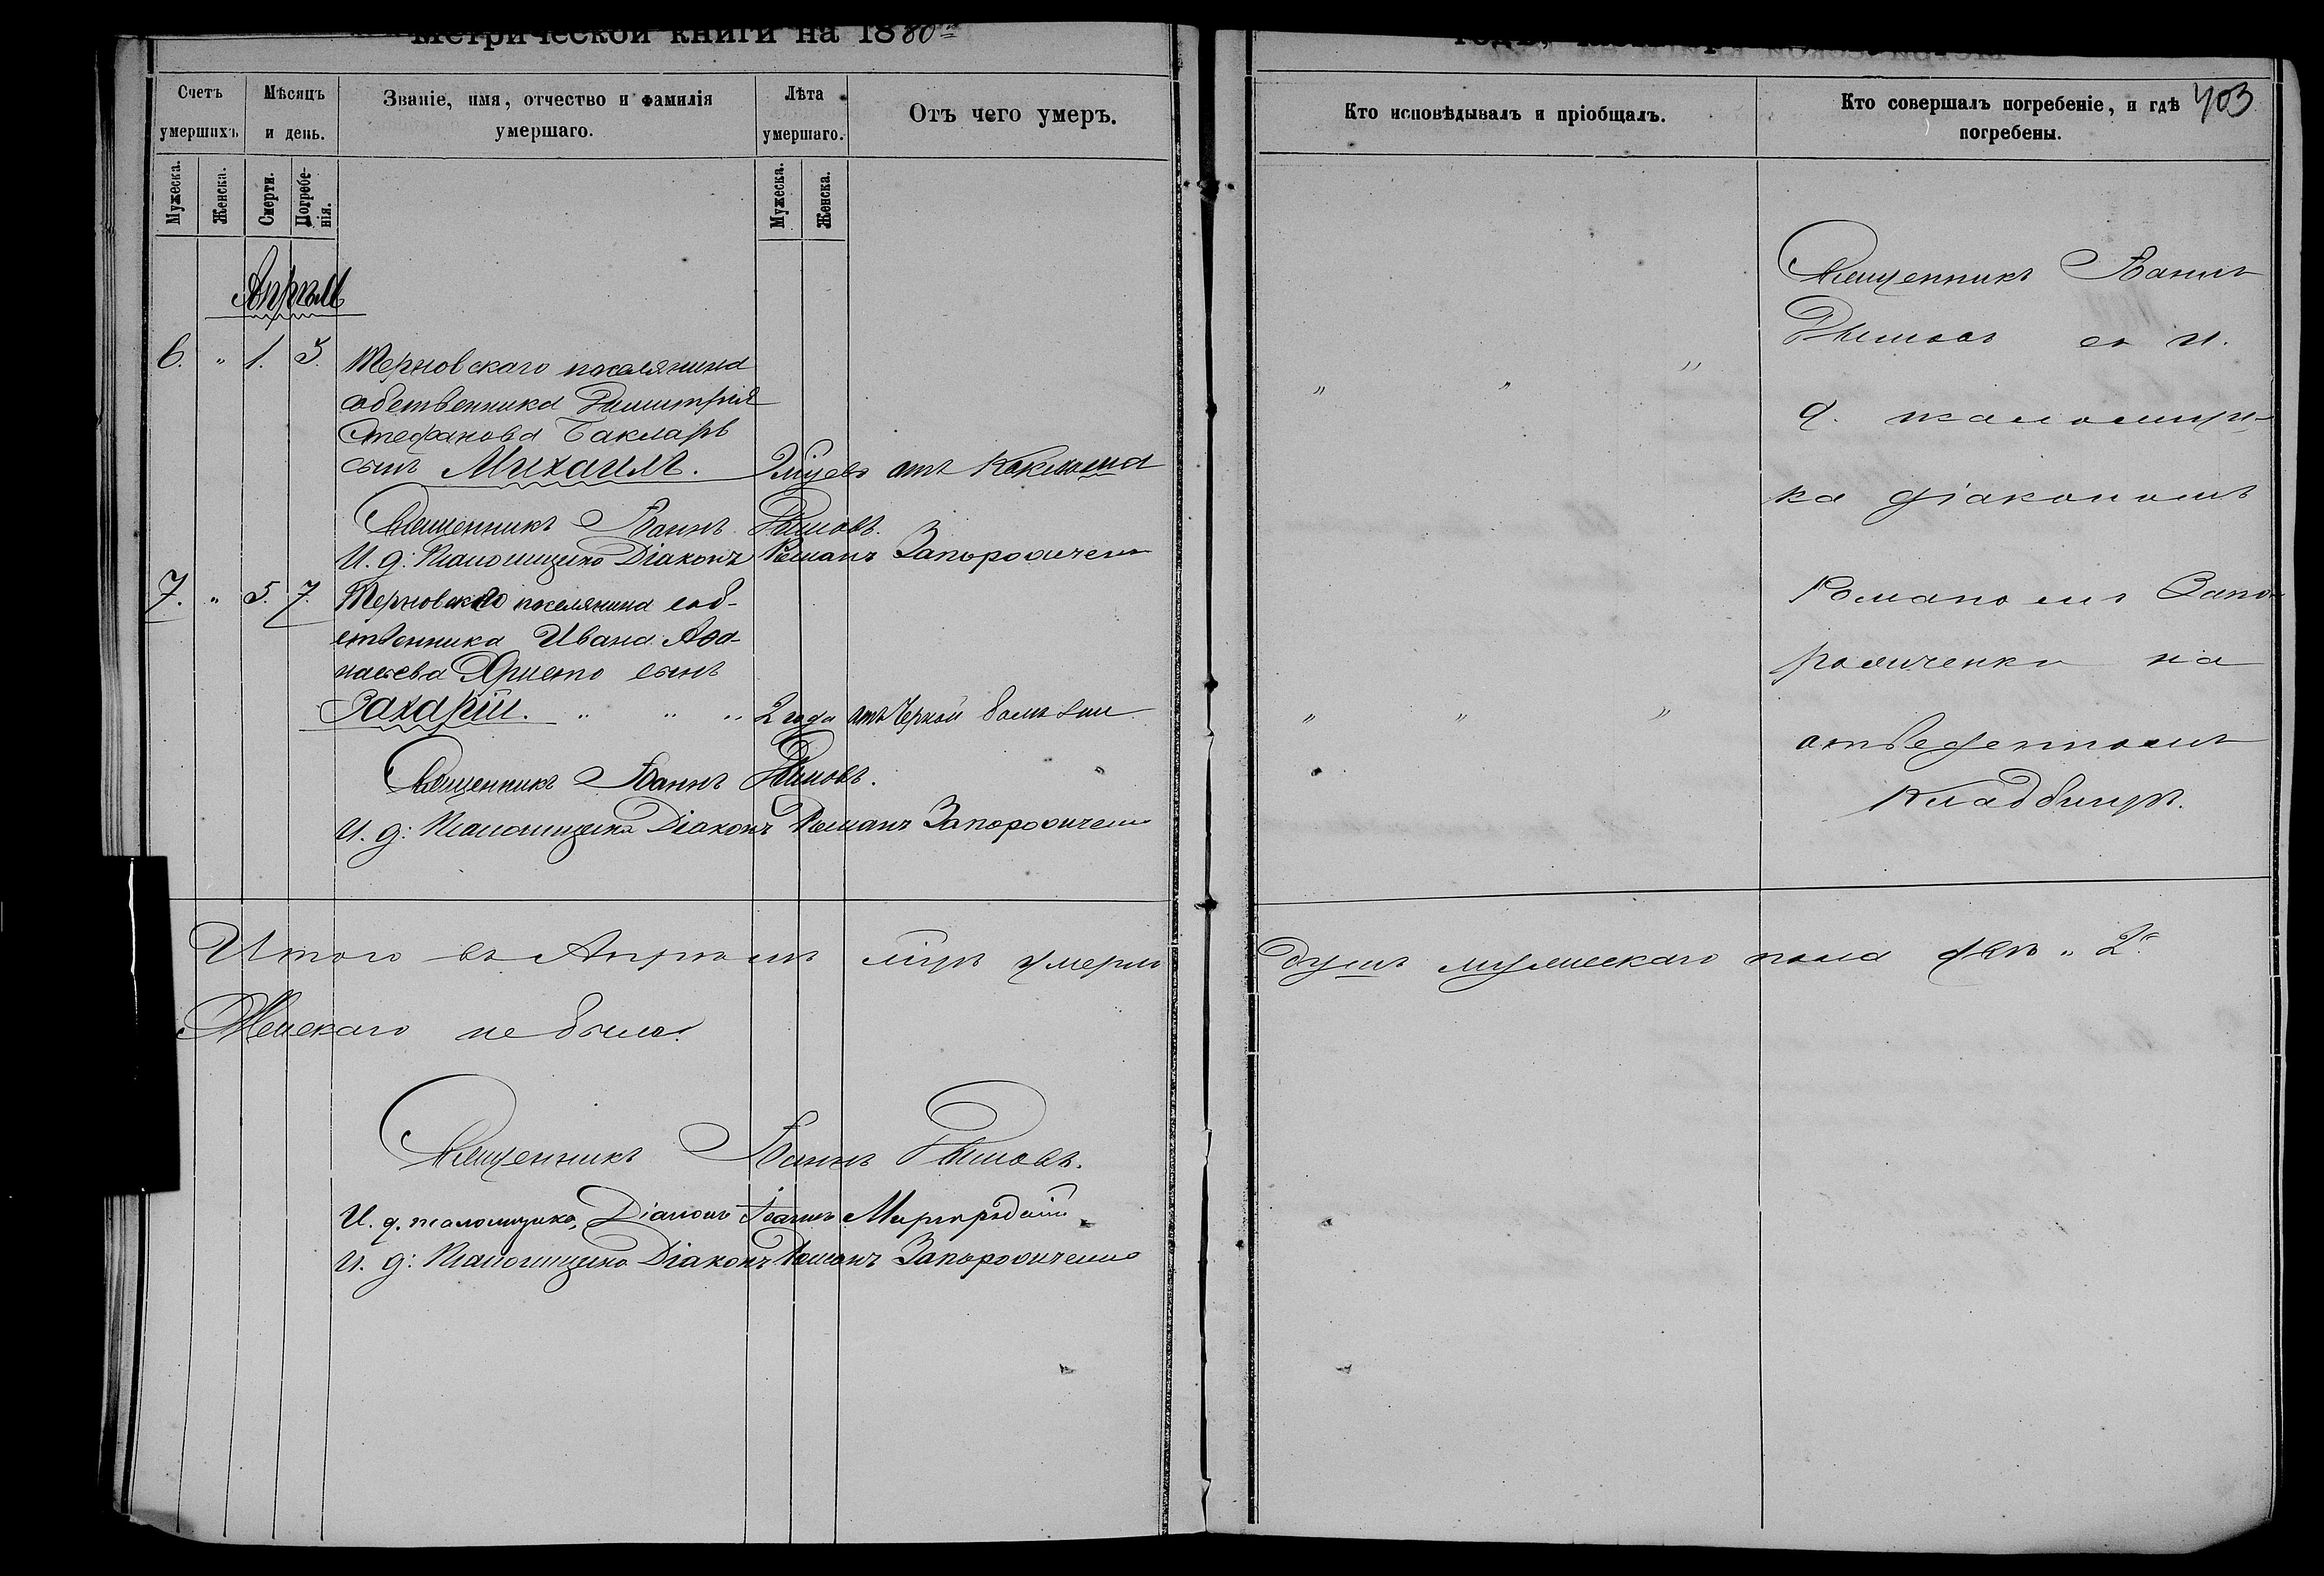 Метрической книги на 1880й
403
Счетъ умершихъ
Мѣсяцъ и день.
Званіе, имя, отчество и фамилія умершаго.
Лѣта умершаго.
Отъ чего умеръ.
Кто исповѣдывалъ и пріобщалъ.
Кто совершалъ погребеніе, и гдѣ погребены.
Мужеска.
Женска.
Смерти.
Погребенія.
Мужеска.
Женска.
Апрѣль
6. " 1. 5. Терновскаго поселянина
собственника Димитрія
Стефанова Бакларъ
сынъ Михаилъ.
отъ Коклюша
" " "
Священникъ Іоаннъ
И. д: Псаломщика Діаконъ Романъ Запорожченко
7. " 5. 7. Терновскаго поселянина соб-
ственника Ивана Афа-
насьева Христо сынъ
Захарій. " " " 2 года отъ Черной болѣзни
" " "
Священникъ Іоаннъ
И. д: Псаломщика Діаконъ Романъ Запорожченко
Священникъ Іоаннъ
съ и.
д. псаломщи-
ка діакономъ
Романомъ Запо-
рожченко на
отведенномъ
кладбищѣ.
Итого въ Апрѣлѣ мцѣ умерло душъ мужескаго пола двѣ " 2"
Женскаго не было.
Священникъ Іоаннъ
И. д. псаломщика, Діаконъ Іоаннъ
И. д: Псаломщика Діаконъ Романъ Запорожченко